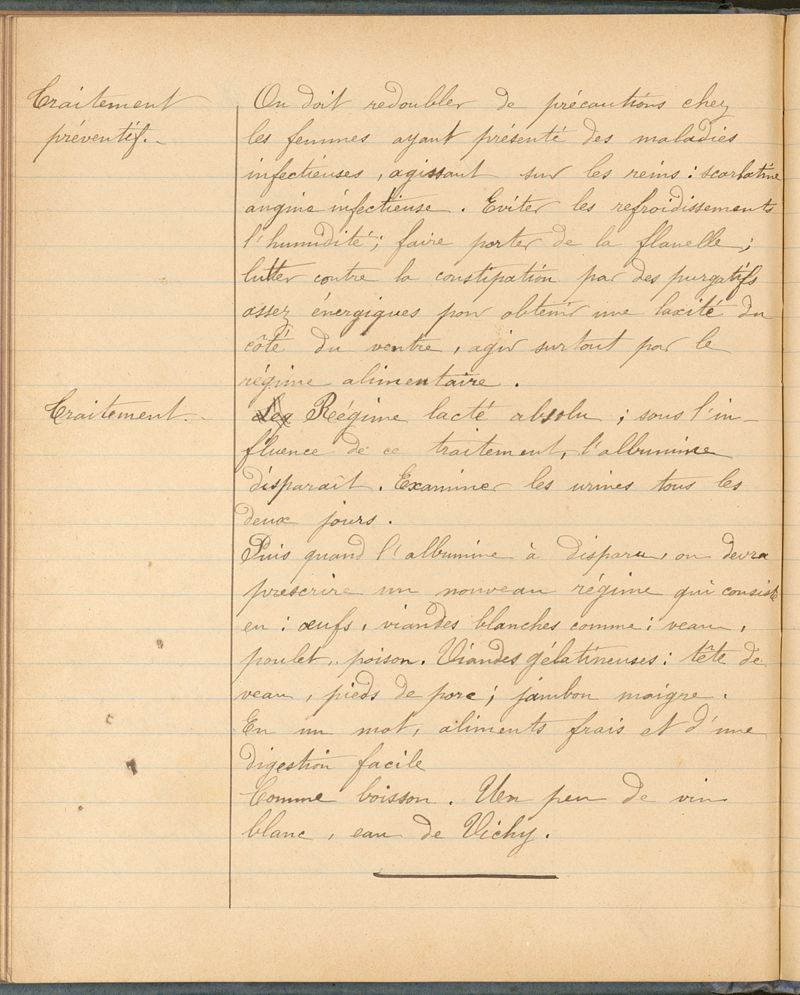 Traitement
préventif.-
On doit redoubler de précautions chez
les femmes ayant présenté des maladies
infectieuses, agissant sur les reins : scarlatine
angine infectieuse. Eviter les refroidissements
l'humidité ; faire porter de la flanelle ;
lutter contre la constipation par des purgatifs
assez énergiques pour obtenir une laxité du
côté du ventre, agir surtout par le
régime alimentaire.
Traitement.-
Régime lacté absolu ; sous l'in-
fluence de ce traitement, l'albumine
disparaît. Examiner les urines tous les
deux jours.
Puis quand l'albumine à disparu, on devra
prescrire un nouveau régime qui consiste
en : œufs, viandes blanches comme : veau,
poulet, poison. Viandes gélatineuses : tête de
veau, pieds de porc ; jambon maigre.
En un mot, aliments frais et d'une
digestion facile
Comme boisson. Un peu de vin
blanc, eau de Vichy.